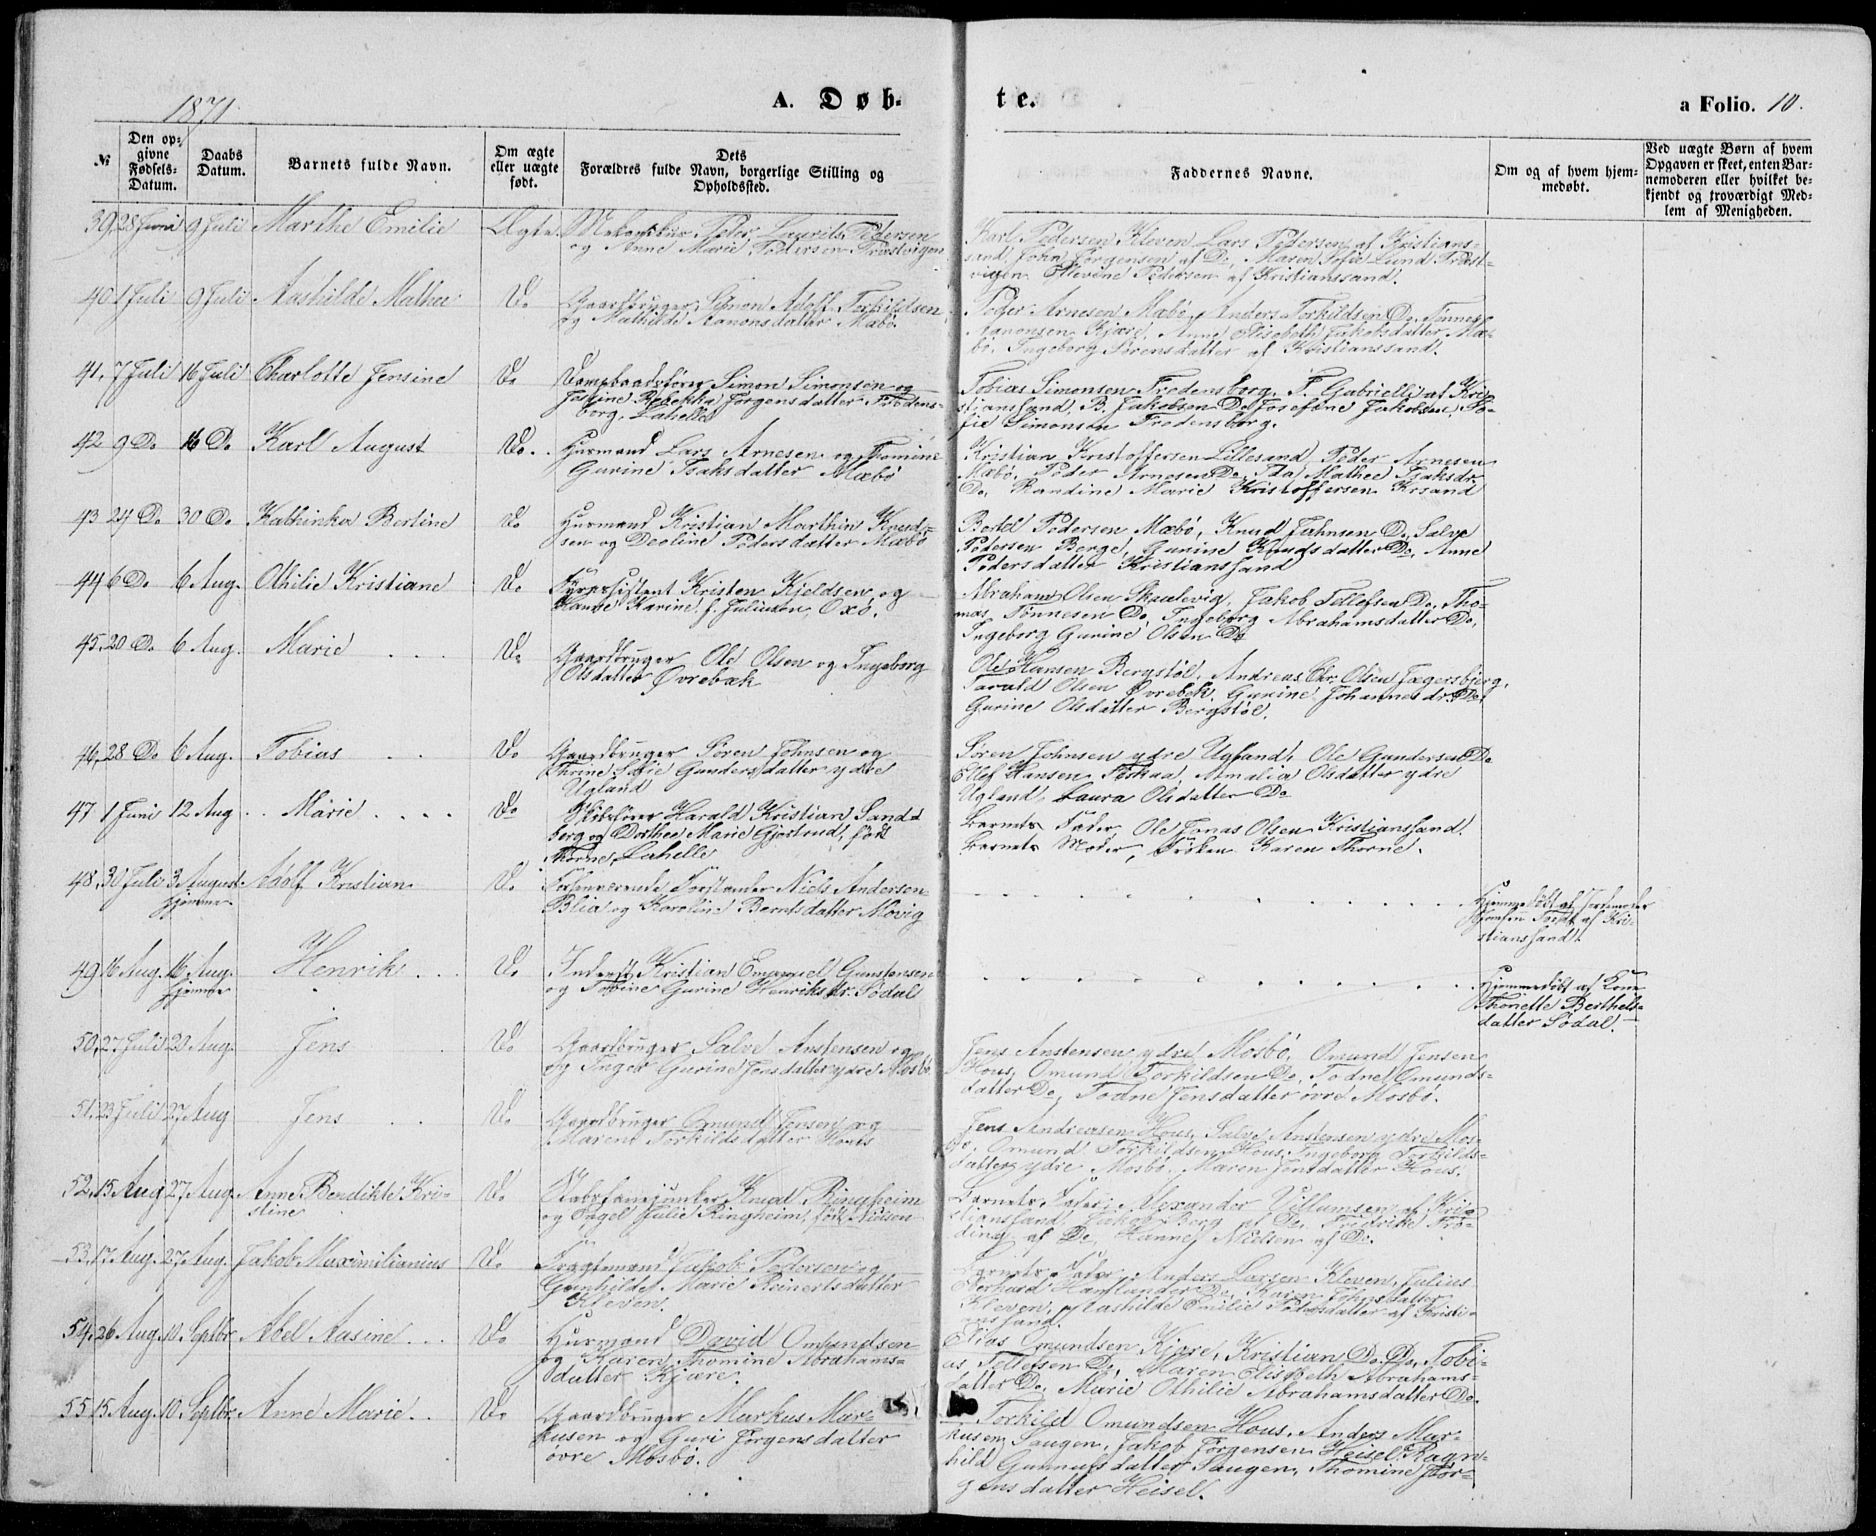 1871.
A. Døb-
te.
a Folio. 10.
№
Den op-
givne
Fødsels-
Datum.
Daabs
Datum.
Barnets fulde Navn.
Om ægte
eller uægte
født.
Dets
Forældres fulde Navn, borgerlige Stilling og
Opholdssted.
Faddernes Navne.
Om og af hvem hjem-
medøbt.
Ved uægte Børn af hvem
Opgaven er skeet, enten Bar-
nemoderen eller hvilket be-
kjendt og troværdigt Med-
lem af Menigheden.
39, 28 Juni 9 Juli Marthe Emilie Ægte Peder Laurits Pedersen
og Anne Marie Pedersen Træstvigen
Karl Pedersen Kleven Lars Pedersen af Kristians-
sand, John Jørgensen af Do, Maren Sofie Lund Træst-
vigen Ellevine Pedersen af Kristianssand.
40 1 Juli 9 Juli Aashilde Mathea Do Gaardbruger Simon Adolf Torkildsen
og Mathilde Aanonsdatter Mæbø.
Peder Arnesen Mæbø, Anders Torkildsen Do, Tønnes
Aanonsen Kjære, Anne Elisabeth Jakobsdatter Mæ-
bø, Ingeborg Sørensdatter af Kristianssand.
41, 7 Juli 16 Juli Charlotte Jensine Do Dampbaadsfører Simon Simonsen og
Josine Rebekka Jørgensdatter Fredens-
borg, Lahelle
Tobias Simonsen Fredensborg, F. Gabrielli af Kri-
stianssand, B. Jakobsen Do Josefine Jakobsen, So-
fie Simonsen Fredensborg.
42 9 Do 16 Do Karl August Do. Husmand Lars Arnesen og Tomine
Gurine Isaksdatter Mæbø
Kristian Kristoffersen Lillesand, Peder Arnesen
Mæbø, Peder Arnesen Do, Ida Mathea Isaksdr.
Do, Randine Marie Kristoffersen Krsand
43 24 Do 30 Do Kathinka Bertine Do Husmand Kristian Marthin Knud-
sen og Deoline Pedersdatter Mæbø
Bertel Pedersen Mæbø, Knud Jahnsen Do, Salve
Pedersen Berge, Gurine Knudsdatter Do, Anne
Pedersdatter Kristianssand
44 6 Do 6 Aug. Othilie Kristiane Do Fyrassistent Kristen Kjeldsen og
Hanne Karine f. Juliusen, Oxø.
Abraham Olsen Skaalevig, Jakob Tellefsen Do, Tho-
mas Tønnesen Do, Ingeborg Abrahamsdatter Do,
Ingeborg Gurine Olsen Do
45, 20 Do 6 Aug. Marie Do Gaardbruger Ole Olsen og Ingeborg
Olsdatter Øvrebæk
Ole Hansen Bergstøl, Andreas Chr. Olsen Jægersbjerg,
Tarald Olsen Øvrebæk, Gurine Johannesdr. Do,
Gurine Olsdatter Bergstøl.
46, 28 Do 6 Aug. Tobias Do Gaardbruger Søren Johnsen og
Thrine Sofie Gundersdatter ydre
Ugland
Søren Johnsen ydre Ugland, Ole Gundersen Do
Ellef Hansen Fiskaa, Amalia Olsdatter ydre
Ugland, Laura Olsdatter Do
47 1 Juni 12 Aug Marie Do Skibsfører Harald Kristian Sand-
berg og Dorthea Marie Gjertrud, født
Thorne, Lahelle
Barnets Fader, Ole Jonas Olsen Kristianssand,
Barnets Moder, Frøken Karen Thorne.
48, 30 Juli 3 August hjemme Adolf Kristian Do Forhenværende Forstander Niels Andersen
Blia og Karoline Berntsdatter Movig
Hjemmedøbt af Jordemoder
Tvedt af Kri-
stianssand.
49 16 Aug. 16 Aug. hjemme Henrik Do Inderst Kristian Emanuel Gunstensen
og Tobine Gurine Henriksdr. Sødal
Hjemmedøbt af Kone
Thonette Berthels-
datter Sødal.
50, 27 Juli 20 Aug. Jens Do Gaardbruger Salve Anstensen og
og Inger Gurine Jensdatter ydre Mosbø
Jens Anstensen ydre Mosbø, Omund Jensen
Hous, Omund Torkildsen Do, Todne Omunds-
datter Do, Todne Jensdatter øvre Mosbø.
51, 23 Juli 27 Aug Jens Do Gaardbruger Omund Jensen og
Maren Torkildsdatter Hous
Jens Andreasen Hous, Salve Anstensen ydre Mos-
bø, Omund Torkildsen Hous, Ingeborg Torkilds-
datter ydre Mosbø, Maren Jensdatter Hous.
52, 15 Aug 27 Aug. Anne Bendikte Kri-
stine Do Stabsfanejunker Knud Ringheim
og Engel Julie Ringheim, født Nielsen
Barnets Fader, Alexander Villumsen af Kri-
stianssand, Jakob Berg af Do, Fredrike Frø-
ding af Do, Hanne Nielsen af Do.
53, 17 Aug. 27 Aug. Jakob Maximilianius Do Fragtemand Jakob Pedersen og
Gunhilde Marie Reinertsdatter
Kleven.
Barnets Fader, Anders Larsen Kleven, Julius
Gerhard Do, Karen Johnsdatter
Kleven, Aashilde Emilie Pedersdatter af Kristi-
anssand.
54, 26 Aug. 10 Septbr. Abel Aasine Do Husmand David Omundsen
og Karen Thomine Abrahams-
datter Kjære.
Elias Omundsen Kjære, Kristian Do Do, Tobi-
as Tellefsen Do, Maren Elisbeth Abrahams-
datter Do, Marie Othilie Abrahamsdatter Do.
55, 15 Aug. 10 Septbr. Anne Marie Do Gaardbruger Markus Mar-
kusen og Guri Jørgensdatter
øvre Mosbø.
Torkild Omundsen Hous, Anders Mar-
kusen Saugen, Jakob Jørgensen Heisel, Ragn-
hild Gunnufsdatter Saugen, Thomine Jør-
gensdatter Heisel.